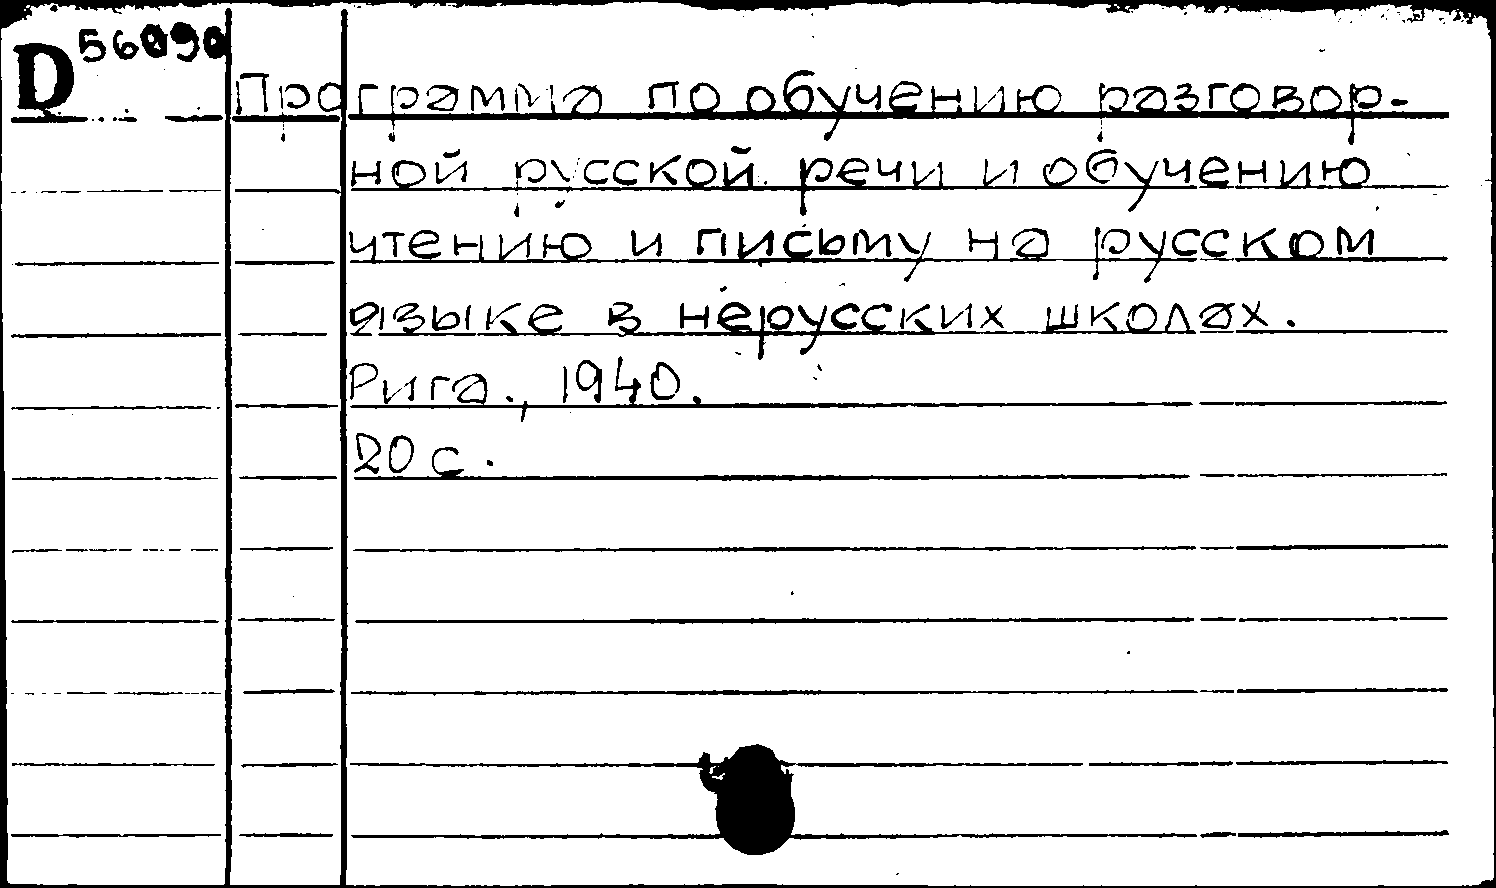 D 56090
Программа по обучению разговор-
ной русской речи и обучению
чтению и письму на русском
языке в нерусских школах.
Рига., 1940.
20 с.